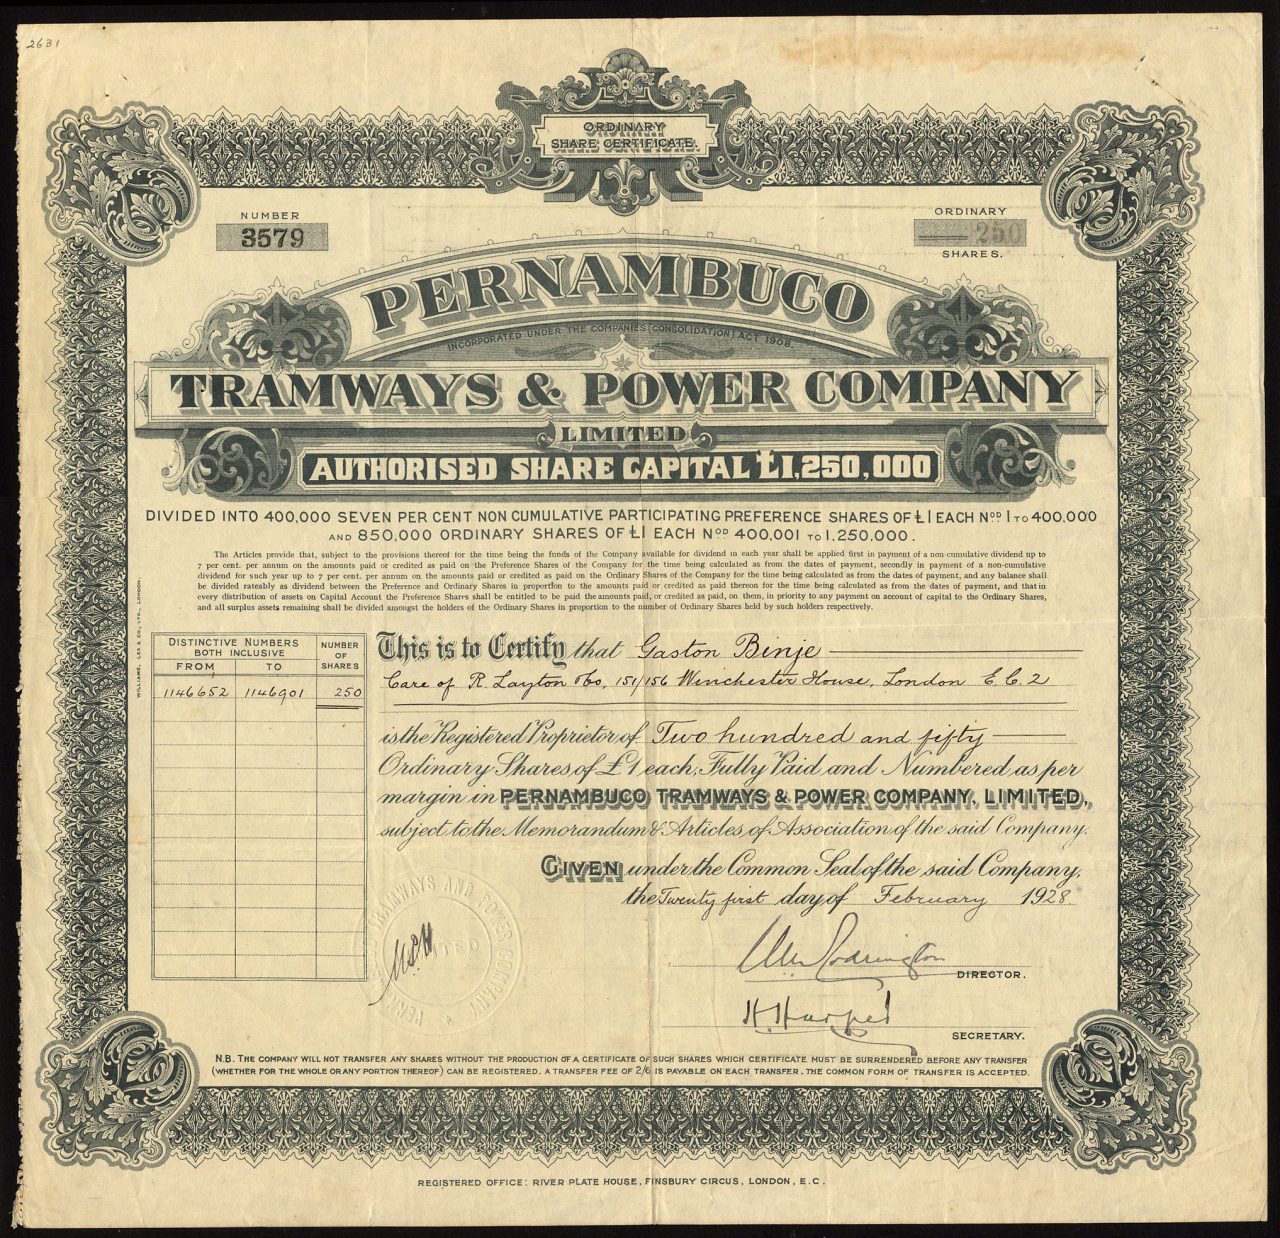 2631
ORDINARY
SHARE CERTIFICATE.
NUMBER
3579
ORDINARY
250
SHARES.
PERNAMBUCO
INCORPORATED UNDER THE COMPANIES (CONSOLIDATION) ACT 1908.
TRAMWAYS & POWER COMPANY
LIMITED
AUTHORISED SHARE CAPITAL £1,250,000
DIVIDED INTO 400,000 SEVEN PER CENT NON CUMULATIVE PARTICIPATING PREFERENCE SHARES OF £1 EACH NOD 1 TO 400,000
AND 850,000 ORDINARY SHARES OF £1 EACH NOD 400,001 TO 1.250.000.
The Articles provide that, subject to the provisions thereof for the time being the funds of the Company available for dividend in each year shall be applied first in payment of a non-cumulative dividend up to
7 per cent. per annum on the amounts paid or credited as paid on the Preference Shares of the Company for the time being calculated as from the dates of payment, secondly in payment of a non-cumulative
dividend for such year up to 7 per cent. per annum on the amounts paid or credited as paid on the Ordinary Shares of the Company for the time being calculated as from the dates of payment, and any balance shall
be divided rateably as dividend between the Preference and Ordinary Shares in proportion to the amounts paid or credited as paid thereon for the time being calculated as from the dates of payment, and that in
every distribution of assets on Capital Account the Preference Shares shall be entitled to be paid the amounts paid, or credited as paid, on them, in priority to any payment on account of capital to the Ordinary Shares,
and all surplus assets remaining shall be divided amongst the holders of the Ordinary Shares in proportion to the number of Ordinary Shares held by such holders respectively.
WILLIAMS, LEA & CO., LTD., LONDON.
DISTINCTIVE NUMBERS
BOTH INCLUSIVE
NUMBER
OF
SHARES
FROM
TO
1146652 1146901 250
This is to Certify that Gaston Binje
Care of R. Layton & Co, 151/156 Winchester House, London E.C.2
is the Registered Proprietor of Two hundred and fifty
Ordinary Shares of £1 each, Fully Paid and Numbered as per
margin in PERNAMBUCO TRAMWAYS & POWER COMPANY, LIMITED,
subject to the Memorandum & Articles of Association of the said Company.
GIVEN under the Common Seal of the said Company,
the Twenty first day of February 1928.
PERNAMBUCO TRAMWAYS AND POWER COMPANY
LIMITED
DIRECTOR.
H. Harper
SECRETARY.
N.B. THE COMPANY WILL NOT TRANSFER ANY SHARES WITHOUT THE PRODUCTION OF A CERTIFICATE OF SUCH SHARES WHICH CERTIFICATE MUST BE SURRENDERED BEFORE ANY TRANSFER
(WHETHER FOR THE WHOLE OR ANY PORTION THEREOF) CAN BE REGISTERED. A TRANSFER FEE OF 2/6 IS PAYABLE ON EACH TRANSFER. THE COMMON FORM OF TRANSFER IS ACCEPTED.
REGISTERED OFFICE: RIVER PLATE HOUSE, FINSBURY CIRCUS, LONDON, E.C.